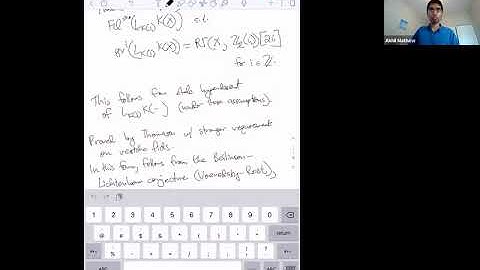 Fil (L_{K(1)} K(X)) s.t.
gr^i (L_{K(1)} K(X)) = RΓ(X, ℤ_ℓ(i))[2i]
for i ∈ ℤ.
This follows from étale hyperdescent
of L_{K(1)} K(-) (under these assumptions).
Proved by Thomason w/ stronger requirement
on residue fields.
In this form, follows from the Beilinson-
Lichtenbaum conjecture (Voevodsky-Rost),
Akhil Mathew
1 2 3 4 5 6 7 8 9 0
return
ABC
ABC